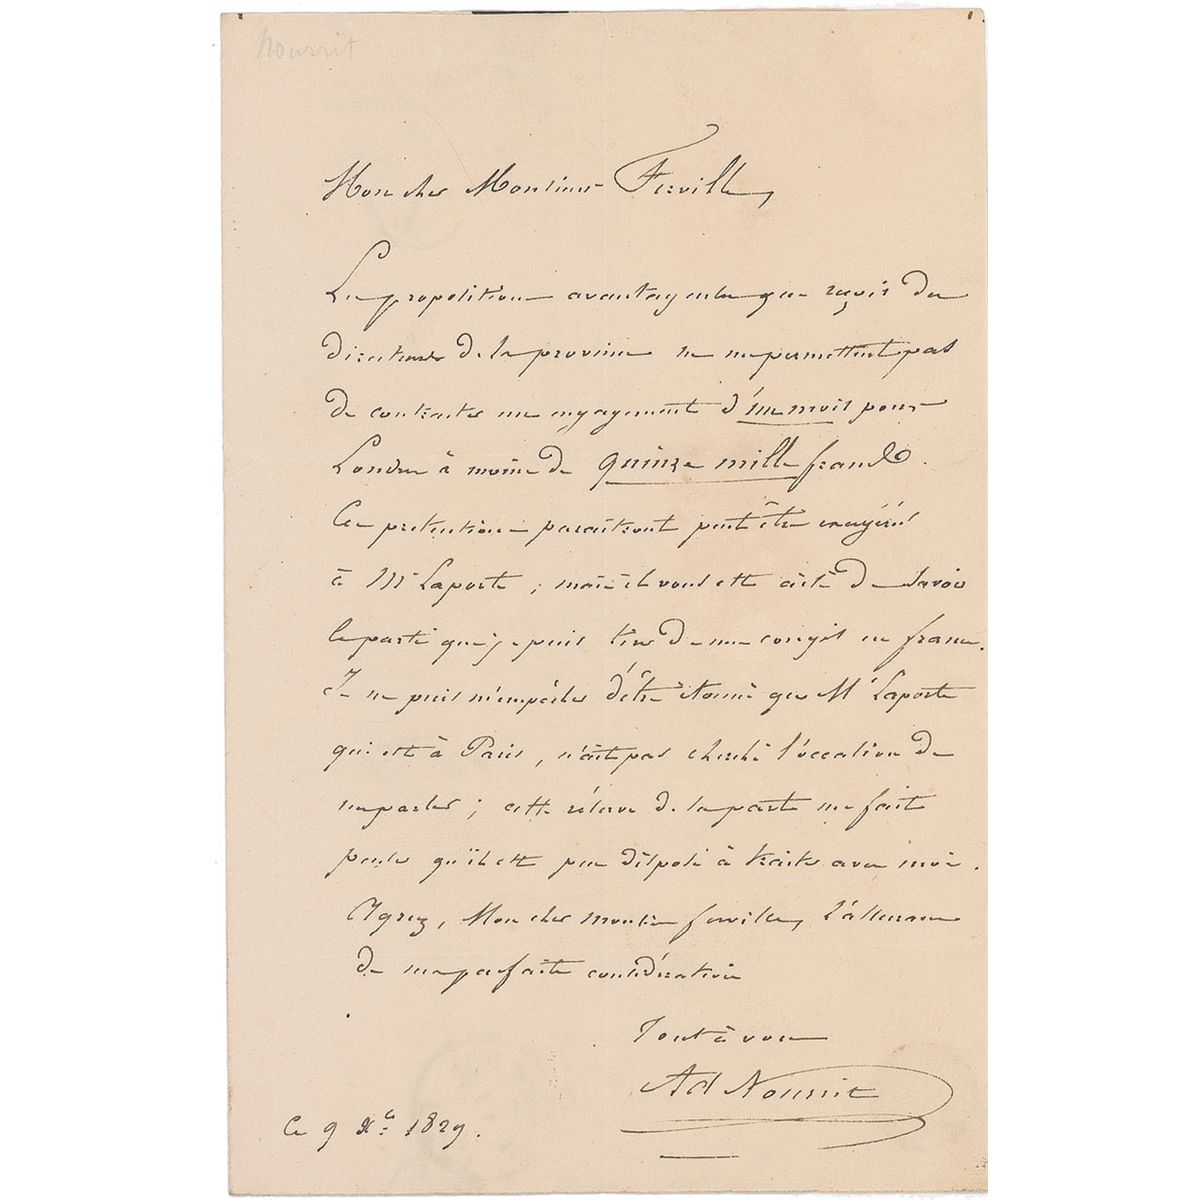 Nourrit
Mon cher Monsieur Ferville,
Les propositions avantageuses que reçois des
directeurs de la province ne me permettent pas
de contracter un engagement d'un mois pour
Londres à moins de quinze mille francs.
Ces prétentions paraîtront peut être exagérées
à Mr Laporte ; mais il vous est aisé de savoir
le parti que je puis tirer de mes congés en france.
Je ne puis m'empêcher d'être étonné que Mr Laporte
qui est à Paris, n'ait pas cherché l'occasion de
me parler ; cette réserve de sa part me fait
penser qu'il est peu disposé à traiter avec moi.
Agréez, Mon cher monsieur ferville, l'assurance
de ma parfaite considération
Tout à vous
Ad Nourrit
Ce 9 Xbre 1829.